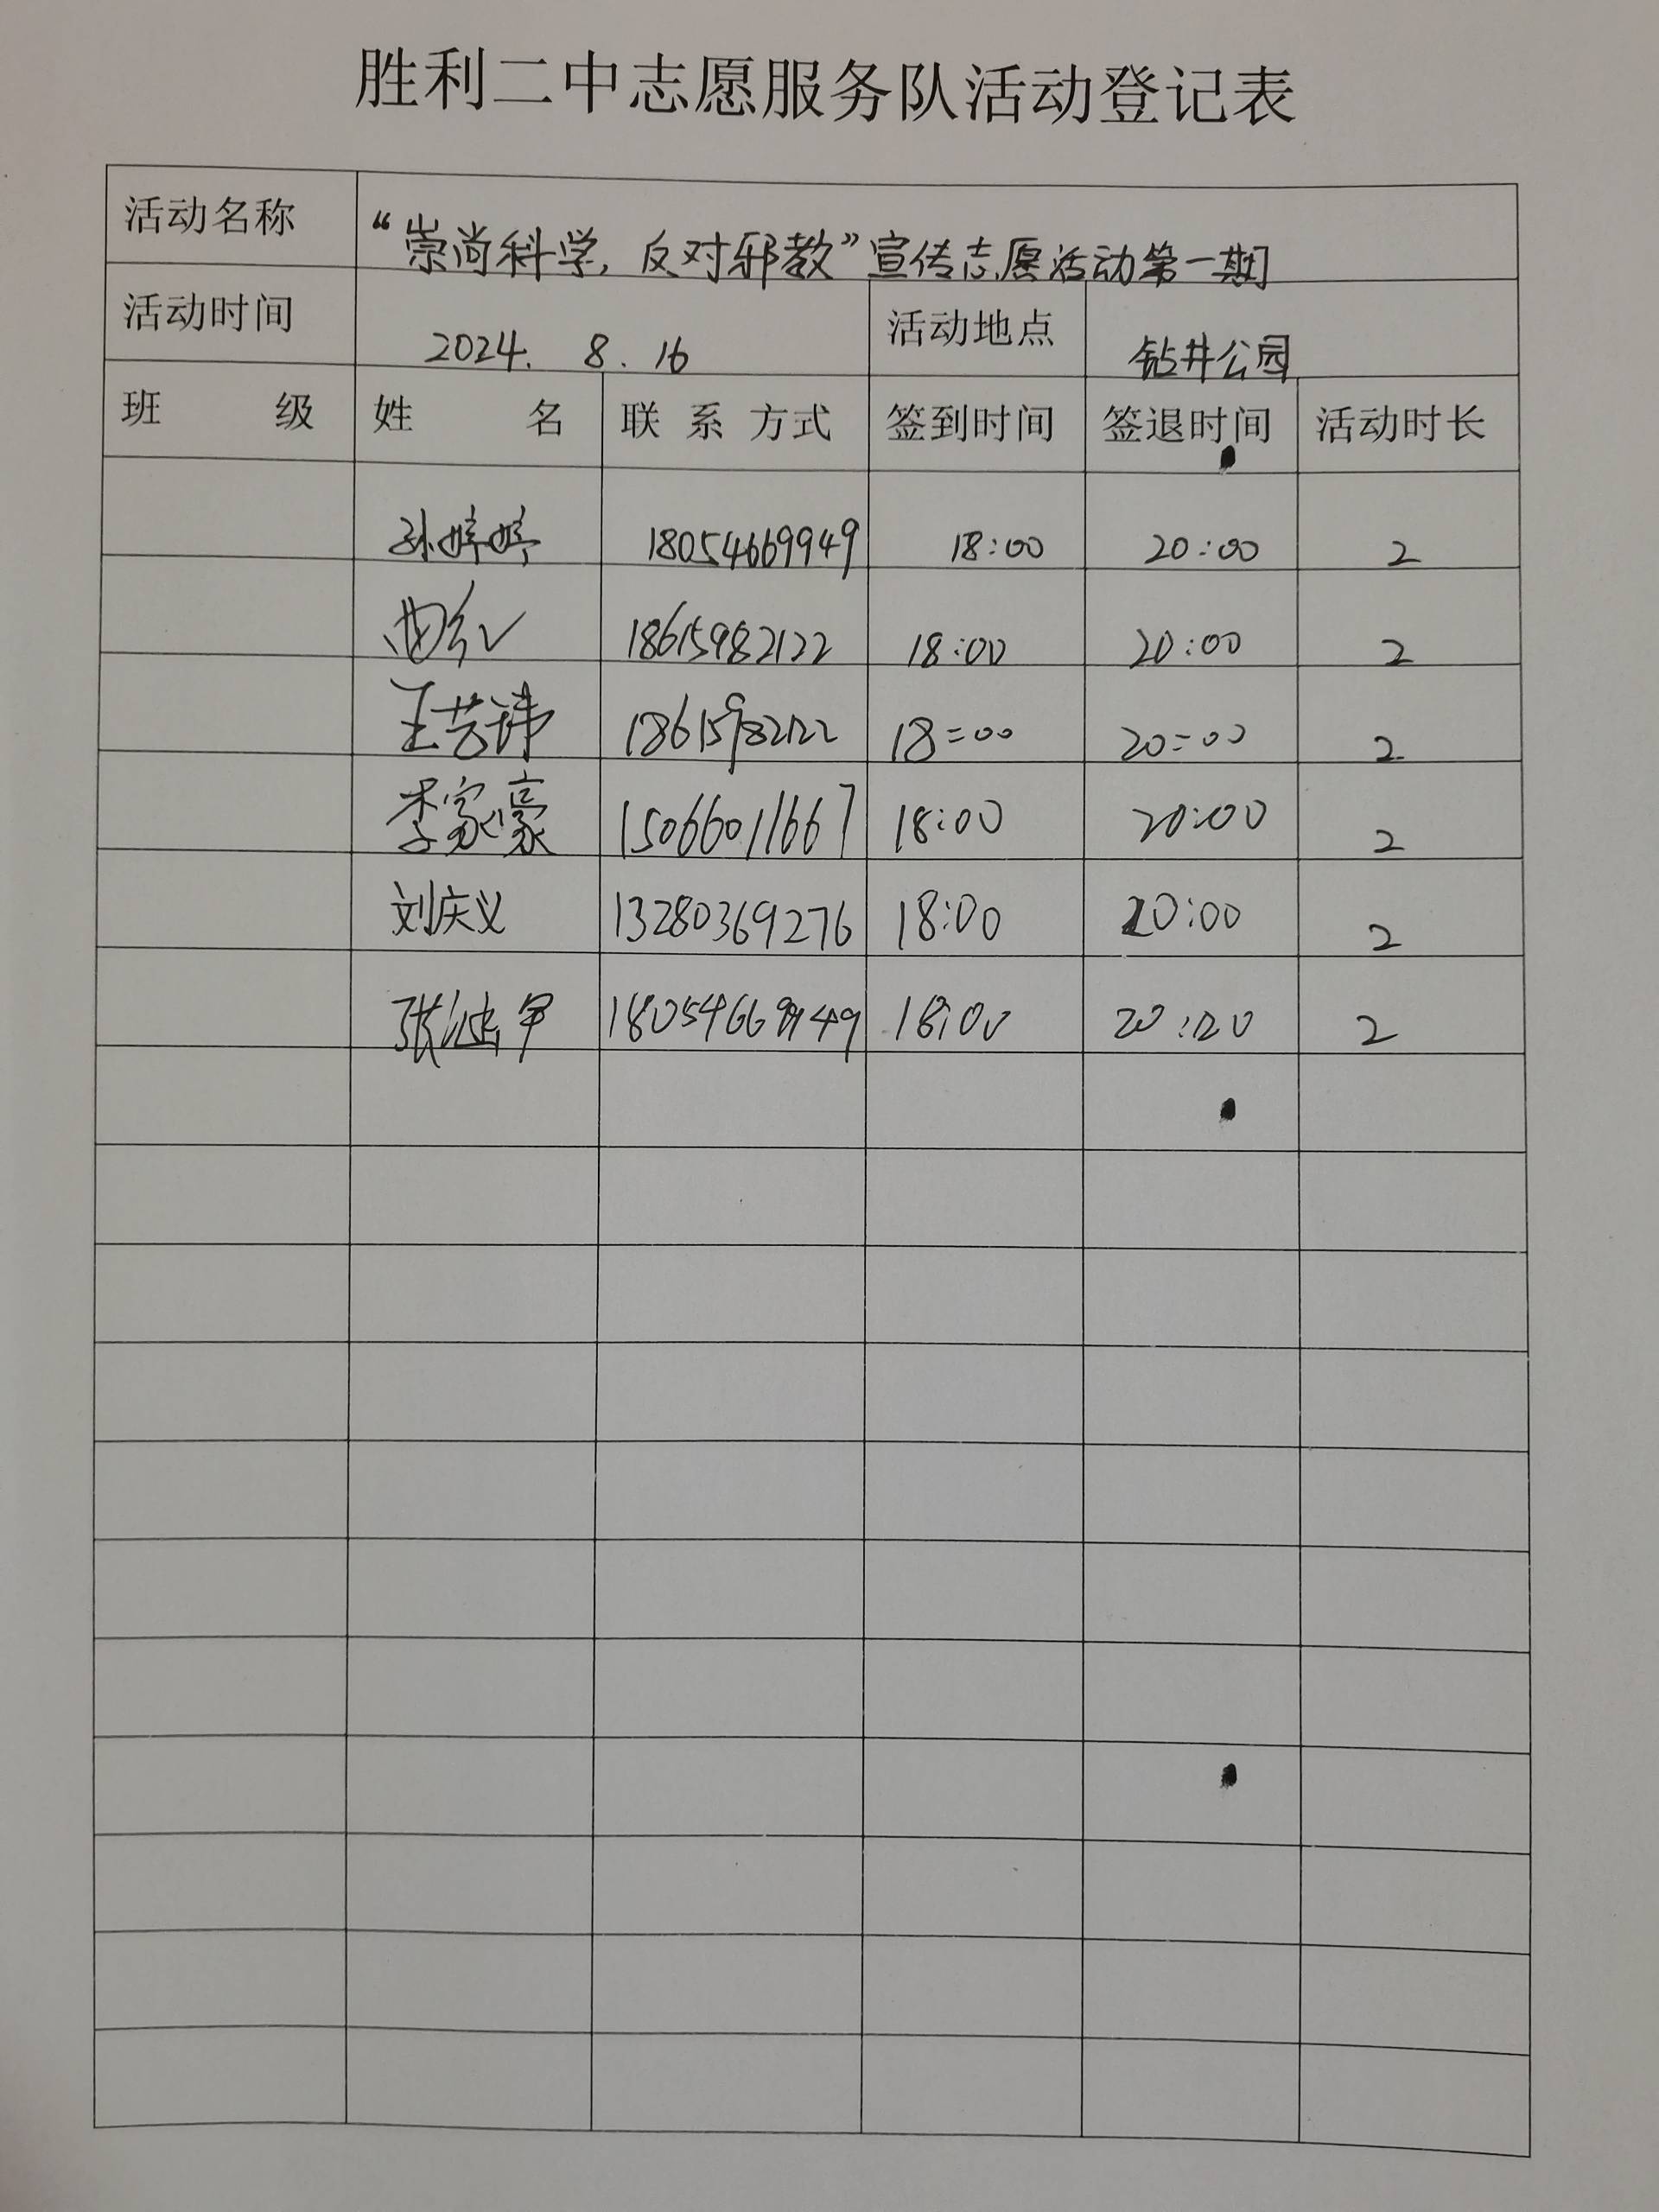 胜利二中志愿服务队活动登记表
活动名称 “崇尚科学，反对邪教”宣传志愿活动第一期
活动时间 2024.8.16 活动地点 钻井公园
班级 姓名 联系方式 签到时间 签退时间 活动时长
孙婷婷 18054669949 18:00 20:00 2
曲红 18615982122 18:00 20:00 2
王艺玮 18615982122 18:00 20:00 2
李家豪 15066011667 18:00 20:00 2
刘庆义 13280369276 18:00 20:00 2
18:00 2